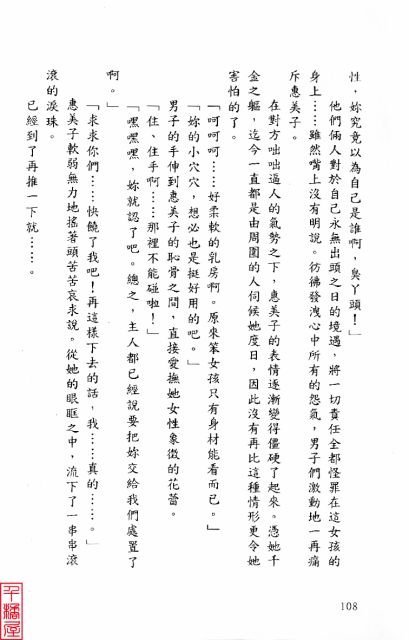 性，妳究竟以為自己是誰啊，臭丫頭！」
他們倆人對於自己永無出頭之日的境遇，將一切責任全都怪罪在這女孩的
身上……雖然嘴上沒有明說。彷彿發洩心中所有的怨氣，男子們激動地一再痛
斥惠美子。
在對方咄咄逼人的氣勢之下，惠美子的表情逐漸變得僵硬了起來。憑她千
金之軀，迄今一直都是由周圍的人伺候她度日，因此沒有再比這種情形更令她
害怕的了。
「呵呵呵……好柔軟的乳房啊。原來笨女孩只有身材能看而已。」
「妳的小穴穴，想必也是挺好用的吧。」
男子的手伸到惠美子的恥骨之間，直接愛撫她女性象徵的花蕾。
「住、住手啊……那裡不能碰啦！」
「嘿嘿嘿，妳就認了吧。總之，主人都已經說要把妳交給我們處置了
啊。」
「求求你們……快饒了我吧！再這樣下去的話，我……真的……。」
惠美子軟弱無力地搖著頭苦苦哀求說。從她的眼眶之中，流下了一串串滾
滾的淚珠。
已經到了再推一下就……。
108
千橘屋